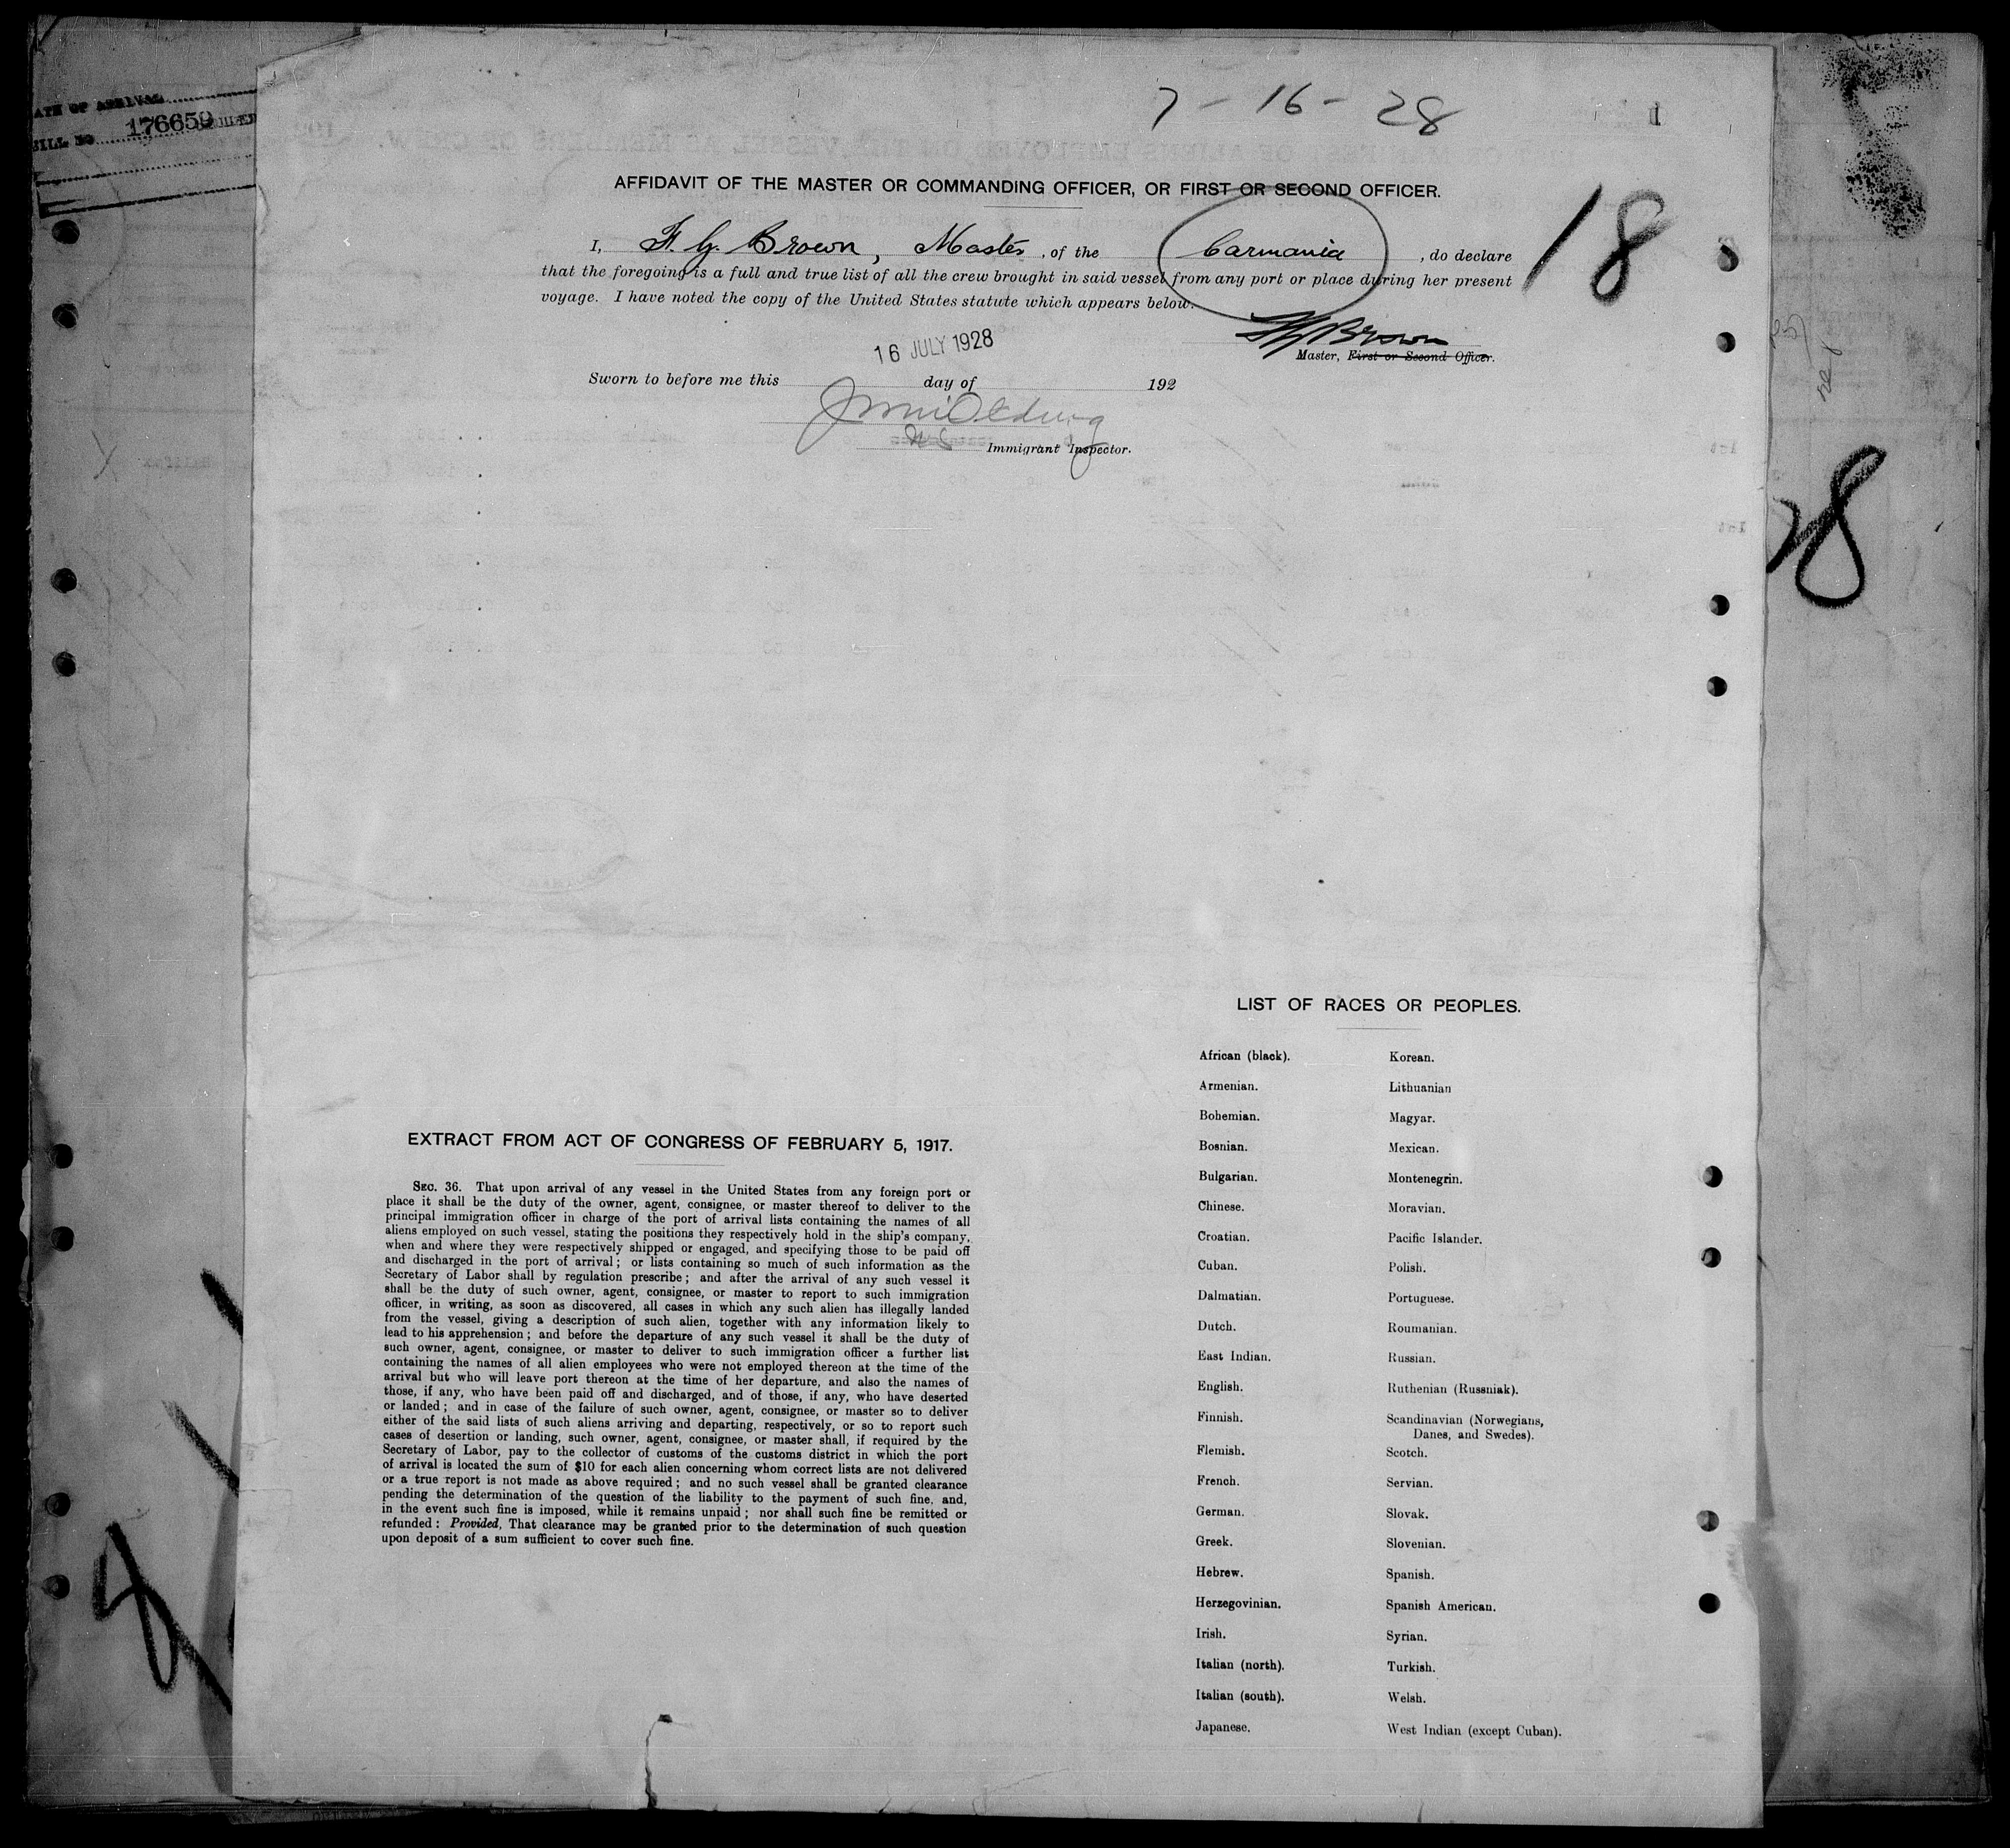 7 - 16 - 28
DATE OF ARRIVAL
BILL NO 176659
AFFIDAVIT OF THE MASTER OR COMMANDING OFFICER, OR FIRST OR SECOND OFFICER.
18
I, F. G. Brown, Master, of the Carmania, do declare
that the foregoing is a full and true list of all the crew brought in said vessel from any port or place during her present
voyage. I have noted the copy of the United States statute which appears below.
FG Brown
Master, First or Second Officer.
16 JULY 1928
Sworn to before me this day of 192
Immigrant Inspector.
28
LIST OF RACES OR PEOPLES.
African (black). Korean.
Armenian. Lithuanian
Bohemian. Magyar.
Bosnian. Mexican.
Bulgarian. Montenegrin.
Chinese. Moravian.
Croatian. Pacific Islander.
Cuban. Polish.
Dalmatian. Portuguese.
Dutch. Roumanian.
East Indian. Russian.
English. Ruthenian (Russniak).
Finnish. Scandinavian (Norwegians,
Danes, and Swedes).
Flemish. Scotch.
French. Servian.
German. Slovak.
Greek. Slovenian.
Hebrew. Spanish.
Herzegovinian. Spanish American.
Irish. Syrian.
Italian (north). Turkish.
Italian (south). Welsh.
Japanese. West Indian (except Cuban).
EXTRACT FROM ACT OF CONGRESS OF FEBRUARY 5, 1917.
SEC. 36. That upon arrival of any vessel in the United States from any foreign port or
place it shall be the duty of the owner, agent, consignee, or master thereof to deliver to the
principal immigration officer in charge of the port of arrival lists containing the names of all
aliens employed on such vessel, stating the positions they respectively hold in the ship's company,
when and where they were respectively shipped or engaged, and specifying those to be paid off
and discharged in the port of arrival; or lists containing so much of such information as the
Secretary of Labor shall by regulation prescribe; and after the arrival of any such vessel it
shall be the duty of such owner, agent, consignee, or master to report to such immigration
officer, in writing, as soon as discovered, all cases in which any such alien has illegally landed
from the vessel, giving a description of such alien, together with any information likely to
lead to his apprehension; and before the departure of any such vessel it shall be the duty of
such owner, agent, consignee, or master to deliver to such immigration officer a further list
containing the names of all alien employees who were not employed thereon at the time of the
arrival but who will leave port thereon at the time of her departure, and also the names of
those, if any, who have been paid off and discharged, and of those, if any, who have deserted
or landed; and in case of the failure of such owner, agent, consignee, or master so to deliver
either of the said lists of such aliens arriving and departing, respectively, or so to report such
cases of desertion or landing, such owner, agent, consignee, or master shall, if required by the
Secretary of Labor, pay to the collector of customs of the customs district in which the port
of arrival is located the sum of $10 for each alien concerning whom correct lists are not delivered
or a true report is not made as above required; and no such vessel shall be granted clearance
pending the determination of the question of the liability to the payment of such fine, and,
in the event such fine is imposed, while it remains unpaid; nor shall such fine be remitted or
refunded: Provided, That clearance may be granted prior to the determination of such question
upon deposit of a sum sufficient to cover such fine.